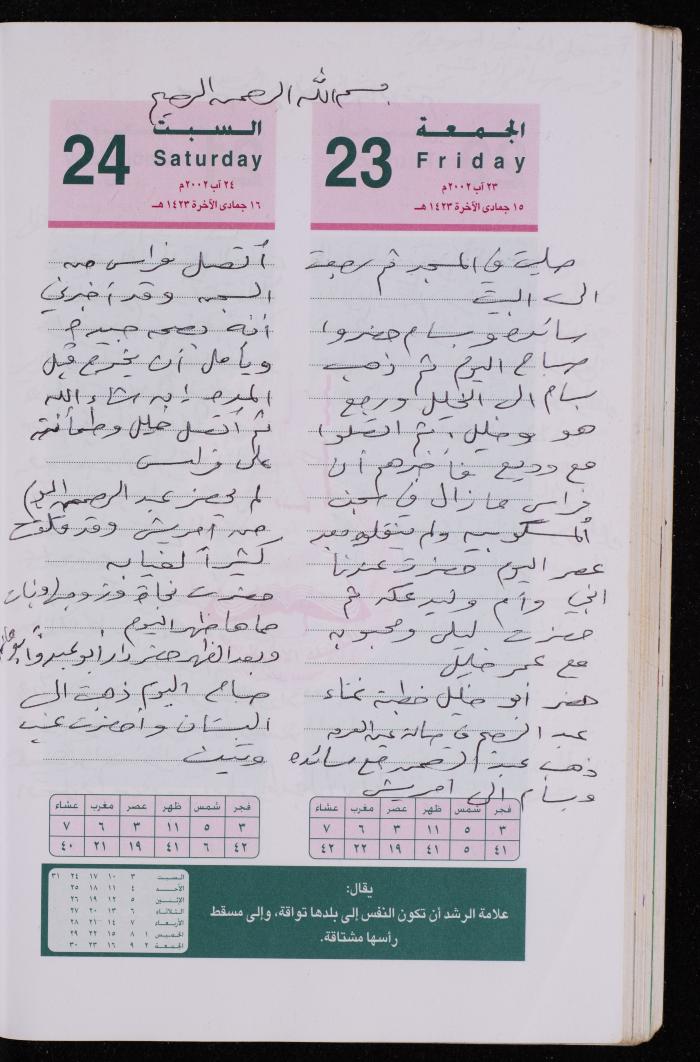 بسم الله الرحمن الرحيم
الجمعة
23
Friday
٢٣ آب ٢٠٠٢م
١٥ جمادى الآخرة ١٤٢٣ هـ
صليت في المسجد ثم رجعت
الى البيت
سائده وبسام حضروا
صباح اليوم ثم ذهب
بسام الى الخليل ورجع
هو وخليل ، ثم اتصلوا
مع وديع فأخبرهم أن
فراس مازال في سجن
المسكوبيه ولم ينقلوه بعد
عصر اليوم حضرت عندنا
اختي وأم وليد عكه ثم
حضرت ليلى ومحبوبه
مع عمر خليل
حضر أبو خليل خطبة غناء
عبد الرحيم في صالة
ذهب عبد الرحمن مع سائده
وبسام الى أمريش
السبت
24
Saturday
٢٤ آب ٢٠٠٢م
١٦ جمادى الآخرة ١٤٢٣ هـ
أتصل فراس من
السجن وقد أخبرني
أنه بصحه جيده
ويأمل أن يخرج قبل
المده إن شاء الله
ثم أتصل خليل وطمأنته
على فراس
لم يحضر عبد الرحمن اليوم
من أمريش وقد قلقت
كثيراً لغيابه
حضرت نجاة وزوجها وبنات
حماها ظهر اليوم
وبعد الظهر حضر دار أبو عبد وأبو
صباح اليوم ذهبت الى
البستان وأحضرت عنب
وتين
فجر شمس ظهر عصر مغرب عشاء
٣ ٥ ١١ ٣ ٦ ٧
٤١ ٥ ٤١ ١٩ ٢٢ ٤٢
فجر شمس ظهر عصر مغرب عشاء
٣ ٥ ١١ ٣ ٦ ٧
٤٢ ٦ ٤١ ١٩ ٢١ ٤٠
يقال:
علامة الرشد أن تكون النفس إلى بلدها تواقة، وإلى مسقط
رأسها مشتاقة.
السبت ٣ ١٠ ١٧ ٢٤ ٣١
الأحد ٤ ١١ ١٨ ٢٥
الإثنين ٥ ١٢ ١٩ ٢٦
الثلاثاء ٦ ١٣ ٢٠ ٢٧
الأربعاء ٧ ١٤ ٢١ ٢٨
الخميس ١ ٨ ١٥ ٢٢ ٢٩
الجمعة ٢ ٩ ١٦ ٢٣ ٣٠